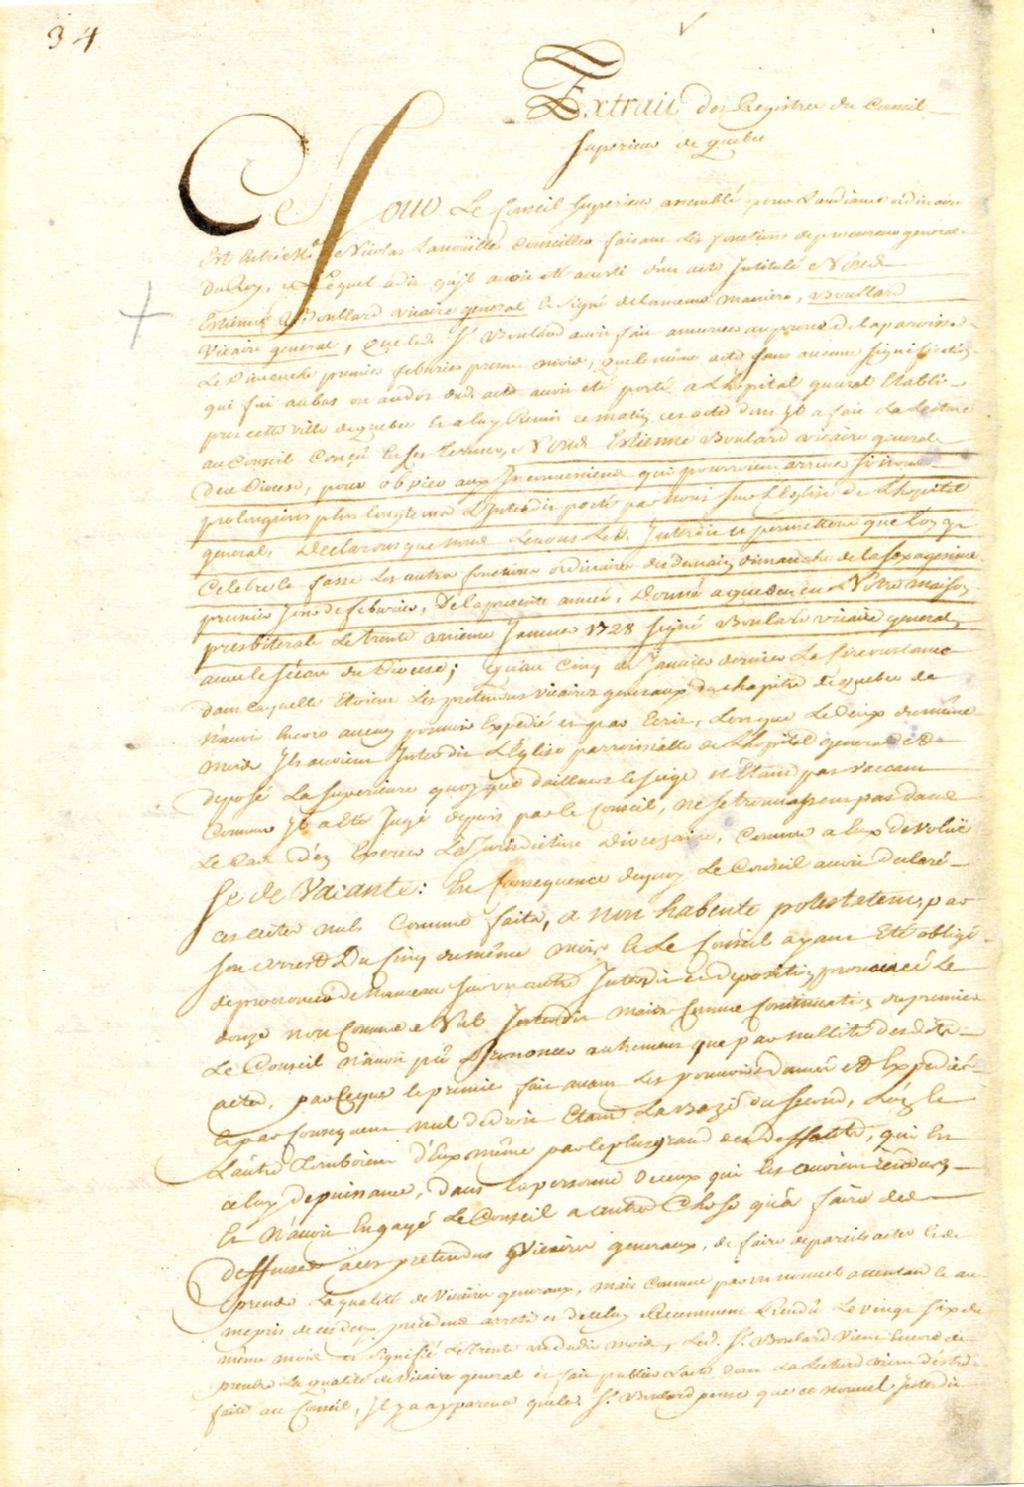 34
Extrait des Registres du Conseil
Superieur de Quebec
Ce Jour Le Conseil Superieur assemblé pour Laudiance ordinaire
Est Entré Me Nicolas Lanoüiller Conseiller faisant Les fonctions de procureur general
Du Roy, Lequel a dit qu'il avoit Esté averti d'un acte Intitulé Nous
Estienne Boullard vicaire general et Signé de la mesme maniere, Boullard
Vicaire general, que led. Sr Boulard avoit fait annoncer au prosne de la paroisse
Le Dimanche premier febvrier present mois, que le même acte sans aucune signification
qui fut au bas ou au dos dud. acte avoit eté porté a L'hôpital general Etabli
pres cette ville de quebec Et a luy Remis ce matin, cet acte dont Il a fait La Lecture
au Conseil Conçû En ses termes, Nous Estienne Boulard vicaire general
de ce Diocese, pour obvier aux Inconveniens qui pourroient arriver si nous
prolongions plus longtems L'Interdit porté par nous sur L'Eglise de L'hopital
general, Declarons que nous Levons Led. Interdit et permettons que l'on y
Celebre et fasse Les autres fonctions ordinaires des demain dimanche de la sexagesime
premier Jour de febvrier, De la presente année, Donné a quebec en Nôtre maison
presbiterale Le trente unieme Janvier 1728 Signé Boulard vicaire general
avec le Sceau du Diocese; qu'au Cinq de Janvier dernier La Circonstance
dans laquelle Etoient Les pretendus vicaires generaux du chapitre de quebec de
n'avoir Encore aucun pouvoir Expedié et par Ecrit, Lorsque Le Deux du même
mois Ils avoient Interdit L'Eglise parroissialle de L'hopital general et
deposé La Superieure quoyque d'ailleurs le siege n'Etant pas vaccant
Comme Il a Eté Jugé depuis par le Conseil, ne se trouvassent pas dans
Le Cas d'en Exercer La Jurisdiction Diocezaine, Comme a Eux devoluë
Sede Vacante: En Consequence dequoy Le Conseil avoit declaré
ces actes nuls Comme faits, a non habente potestatem, par
son arrest Du Cinq du même mois et Le Conseil ayant Eté obligé
de prononcer de nouveau sur un autre Interdit et deposition prononcé Le
douze non Comme Nul Interdit mais Comme Continuation du premier
Le Conseil n'avoit pû Prononcer autrement que par nullité desdits
actes, parceque le premier fait avant Les pouvoirs donnés et Expediés
et par Consequent nul de droit Etant La baze du second, L'un et
L'autre tomboient d'Eux même par le plus grand des deffauts, qui Est
celuy de puissance, dans la personne de ceux qui les avoient rendus
Et n'avoit Engagé Le Conseil a autre Chose qu'a faire des
deffenses a ces pretendus Vicaires generaux, de faire de pareils actes et de
prendre La qualité de Vicaires generaux, mais comme par un nouvel attentat et au
mepris de ces deux precedens arrests et de celuy Recemment Rendû Le vingt six du
même mois et Signifié Le trente dudit mois, Led. Sr Boulard Vient Encore de
prendre La qualité de Vicaire general et faire publier l'acte dont La Lecture vient d'Estre
faite au Conseil, Il y a apparence que led. Sr Boulard pense que ce nouvel Interdit